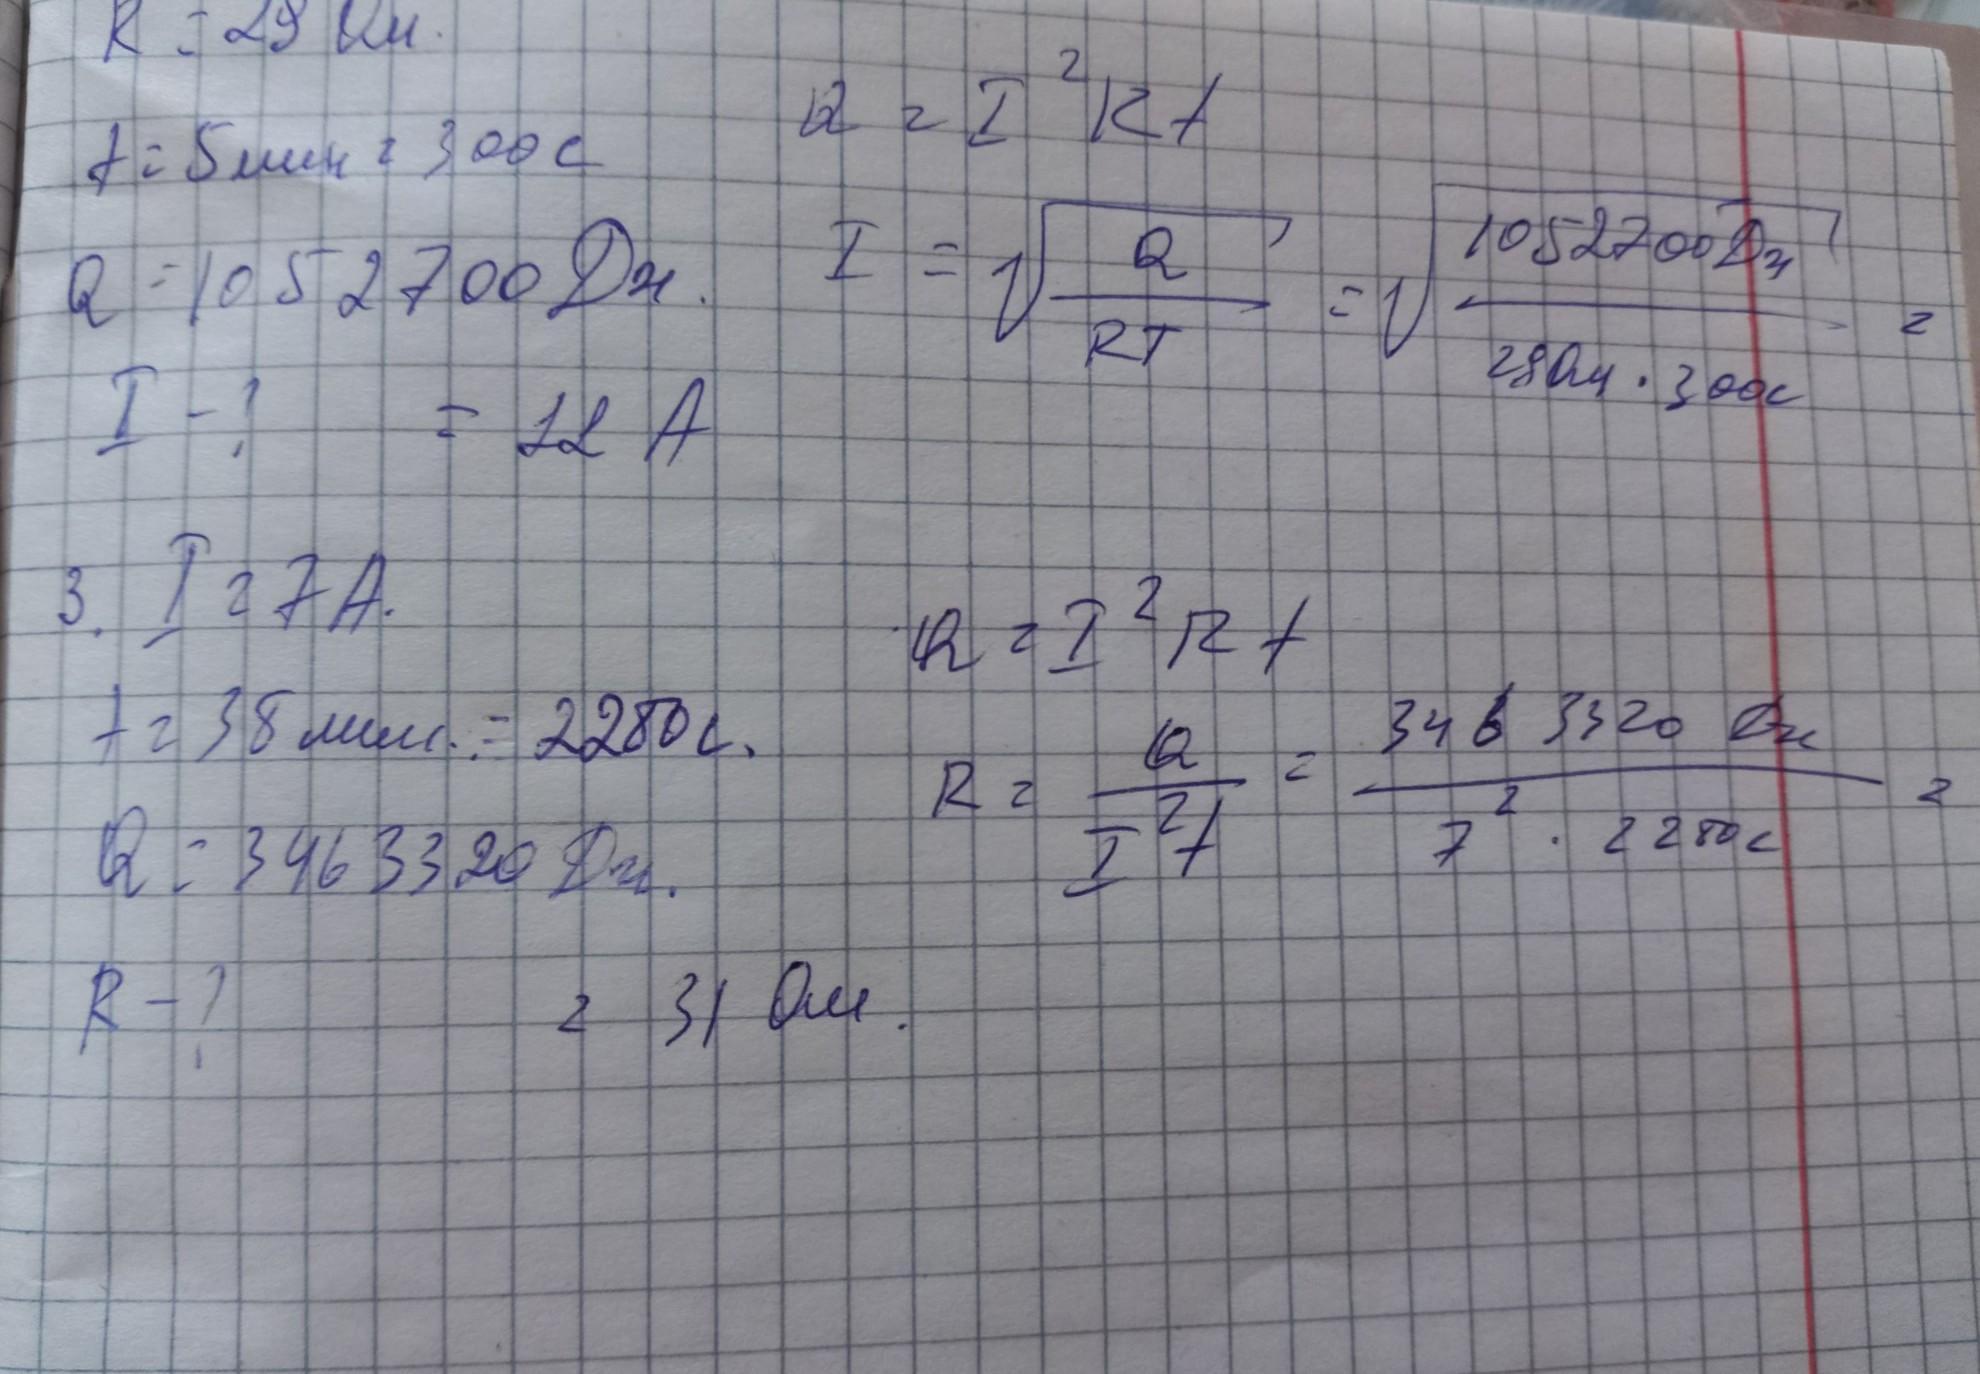 R = 29 Ом.
t = 5 мин = 300 с
Q = 1052700 Дж.
I - ?
Q = I²Rt
I = √(Q / RT) = √(1052700 Дж / 29 Ом · 300 с) =
= 11 А
3. I = 7 А.
t = 38 мин. = 2280 с.
Q = 3463320 Дж.
R - ?
Q = I²Rt
R = Q / I²t = 3463320 Дж / 7² · 2280 с =
= 31 Ом.